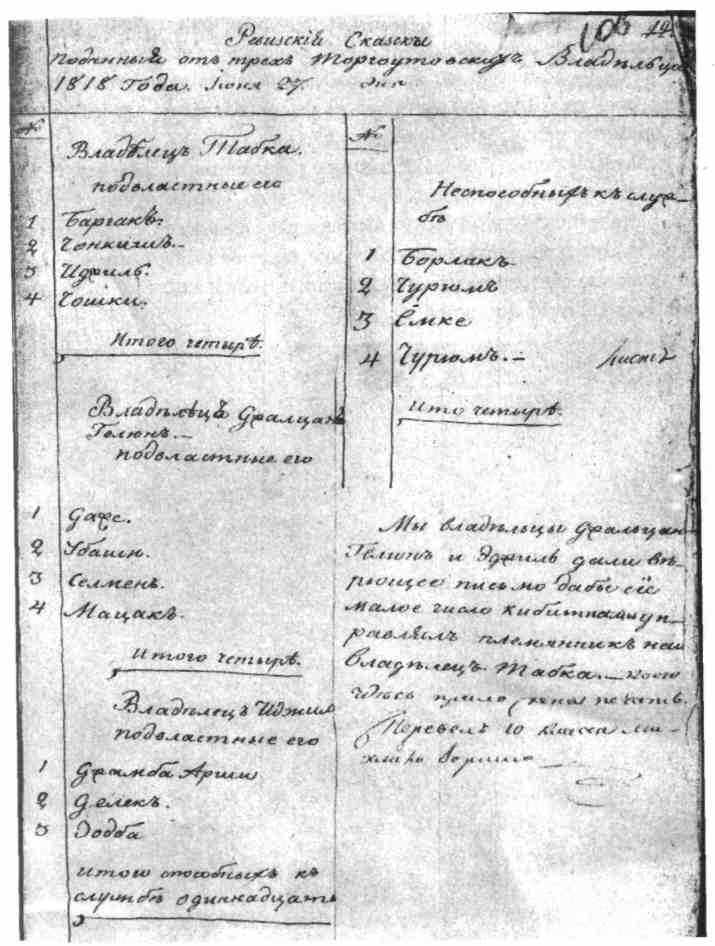 44.
Ревизскiй Сказски
поданный отъ трехъ Торгоутовскихъ Владѣльца
1818 Года. Iюня 27. дня
№
Владѣлецъ Табка.
подвластные его
1 Баргакъ.
2 Чонкишъ.—
3 Иджиль.
4 Чошки.
Итого четырѣ.
Владѣлецъ Джалцанъ
Гелюнъ.—
подвластные его
1
2 Убаши.
3 Селменъ.
4 Мацакъ.
Итого четырѣ.
Владѣлецъ Иджил
подвластные его
1 Джамба Арши
2 Делекъ.
3 Зодба
Итого способныхъ къ
службѣ одиннадцать
№
Неспособныхъ къ служ-
бѣ
1 Борлакъ
2 Чурюмъ
3 Ёмке
4 Чурюмъ.—
Ито четырѣ.
Мы владѣльцы Джальцан
Гелюнъ и Эджиль дали вѣ-
рющее письмо дабы сiе
малое число кибитками уп-
равлялъ племянникъ наш
Владѣлецъ Табка.—
здѣсь приложена печать.
Перевелъ 10 класса